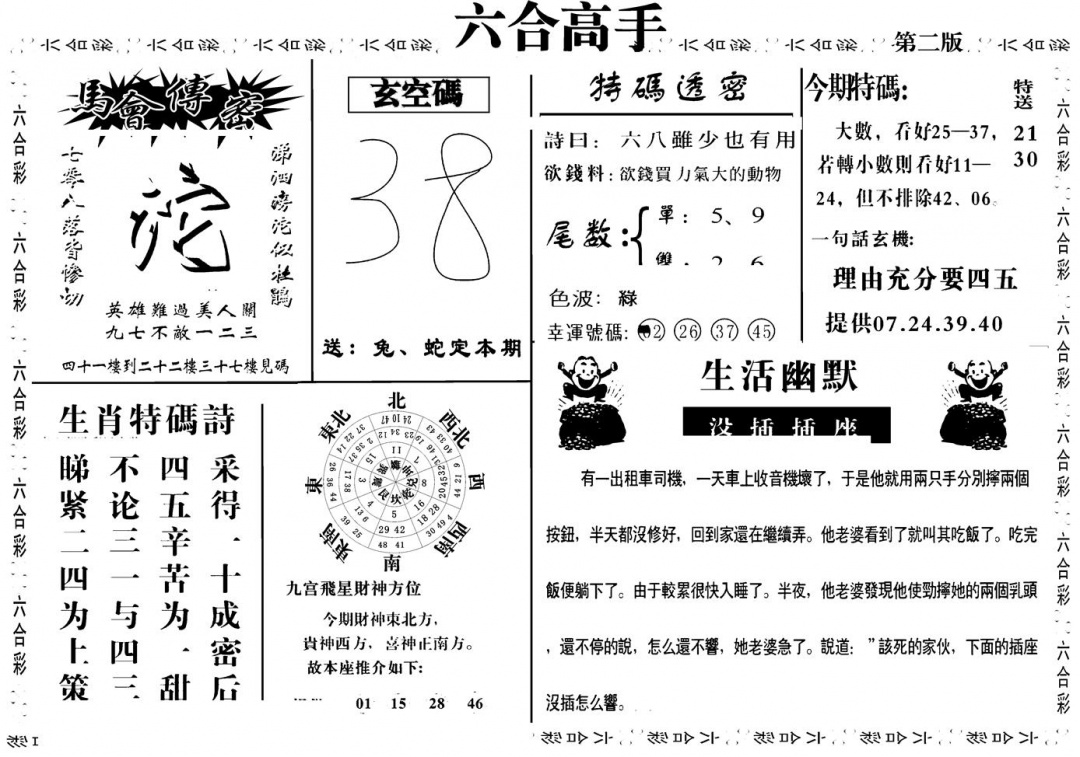 六合高手
第二版
馬會傳密
七零八落皆慘切
涕泗滂沱似杜鵑
沱
英雄難過美人關
九七不敵一二三
四十一樓到二十二樓三十七樓見碼
玄空碼
38
送：兔、蛇定本期
特碼透密
詩曰：六八雖少也有用
欲錢料：欲錢買力氣大的動物
尾数：
單：5、9
雙：2 6
色波：綠
幸運號碼：②㉖㊲㊺
今期特碼：
特送
21
30
大數，看好25—37，
若轉小數則看好11—
24，但不排除42、06。
一句話玄機：
理由充分要四五
提供07.24.39.40
生肖特碼詩
采得一十成密后
四五辛苦为一甜
不论三一与四三
睇紧二四为上策
北
西北
西
西南
南
東南
東
東北
九宫飛星財神方位
今期財神東北方，
貴神西方，喜神正南方。
故本座推介如下：
01 15 28 46
生活幽默
没插插座
有一出租車司機，一天車上收音機壞了，于是他就用兩只手分別擰兩個
按鈕，半天都沒修好，回到家還在繼續弄。他老婆看到了就叫其吃飯了。吃完
飯便躺下了。由于較累很快入睡了。半夜，他老婆發現他使勁擰她的兩個乳頭
，還不停的說，怎么還不響，她老婆急了。說道：”該死的家伙，下面的插座
沒插怎么響。
六合彩